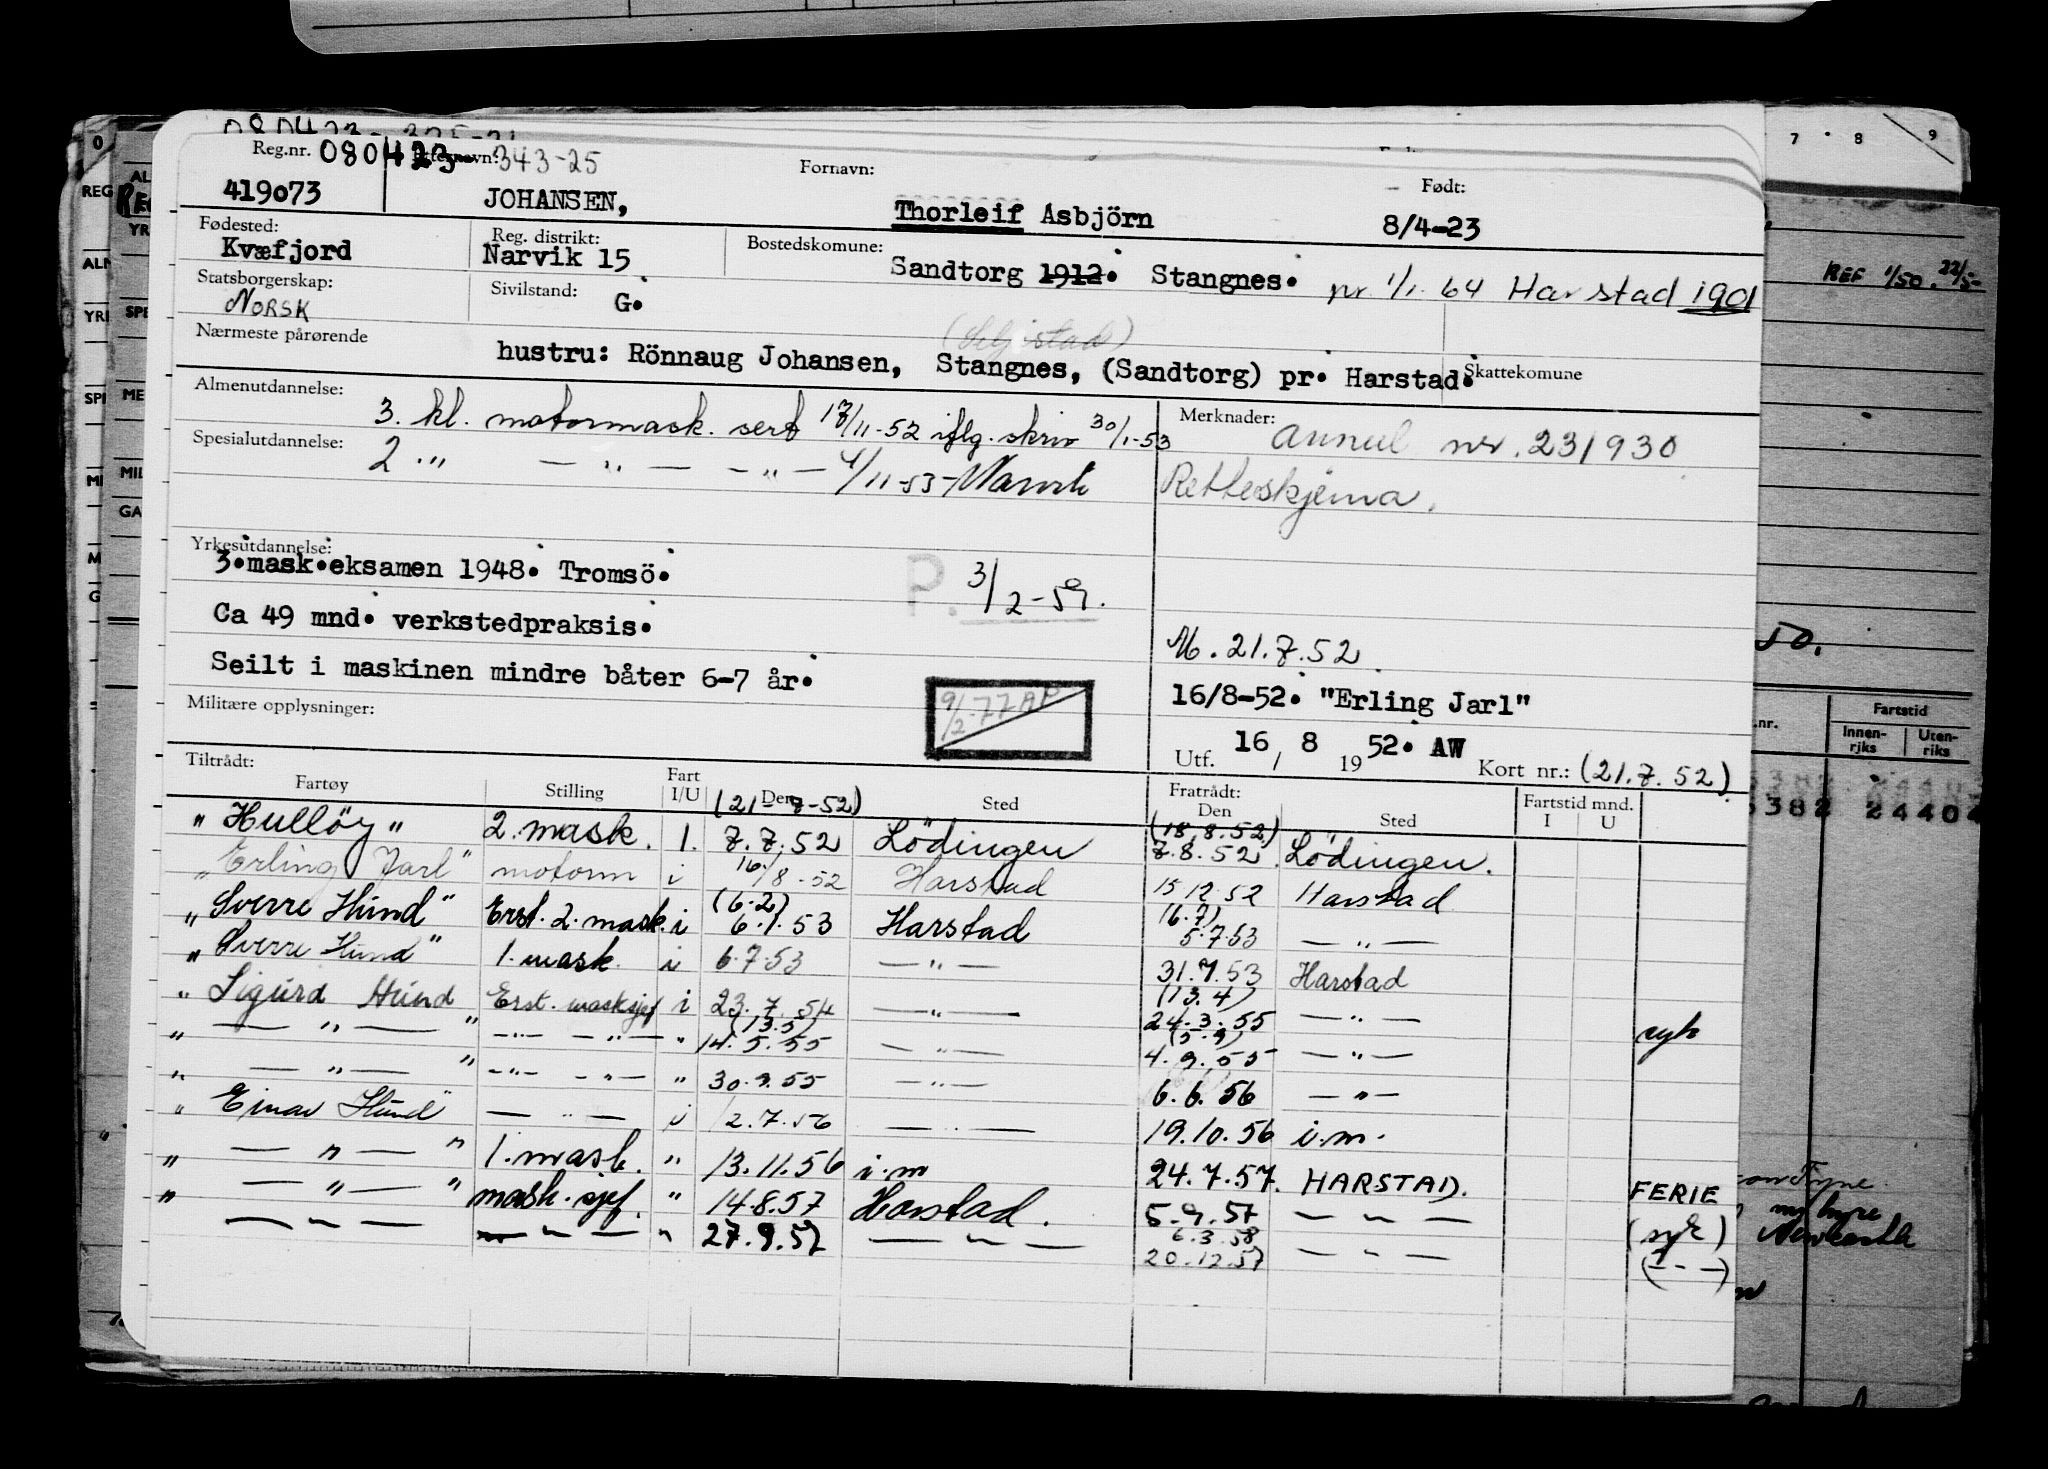 Reg.nr. 080423 Etternavn: 343-25 Fornavn: Født:
419073 JOHANSEN, Thorleif Asbjörn 8/4-23
Fødested: Reg. distrikt: Bostedskomune:
Kvæfjord Narvik 15 Sandtorg 1912. Stangnes. pr 1/1. 64 Harstad 1901
Statsborgerskap: Sivilstand:
NORSK G.
Nærmeste pårørende
hustru: Rönnaug Johansen, Stangnes, (Sandtorg) pr. Harstad. Skattekomune
Almenutdannelse: Merknader:
3. kl. motormask. sert 17/11-52 iflg. skriv 30/1-53 annul nr. 231930
Spesialutdannelse:
2 " — " — — " — 4/11-53-Narvik Retteskjema.
Yrkesutdannelse:
3.mask.eksamen 1948. Tromsö. P. 3/2-59.
Ca 49 mnd. verkstedpraksis.
M. 21.7.52
Seilt i maskinen mindre båter 6-7 år.
9/2-77 AP
16/8-52. "Erling Jarl"
Militære opplysninger:
Utf. 16 / 8 1952. AW Kort nr.: (21.7.52)
Tiltrådt: Fratrådt:
Fartøy Stilling Fart I/U Den Sted Den Sted Fartstid mnd. I U
(21-7-52) (18.8.52)
"Hullöy" 2. mask. 1. 7.7.52 Lödingen 7.8.52 Lödingen.
"Erling Jarl" motorm i 16/8-52 Harstad 15 12.52 Harstad
(6.2) (6.7)
"Sverre Hund" Erst. 2. mask. i 6.1.53 Harstad 5.7.53 — " —
"Sverre Hund" 1. mask. i 6.7.53 — " — 31.7.53 Harstad
(13.4)
"Sigurd Hund Erst. masksjef i 23.7.54 — " — 24.3.55 — " — syk
(13.5) (5.9)
" — " — " — " — — " — " 14.5.55 — " — 4.9.55 — " —
" — " — " — " — — " — " 30.9.55 — " — 6.6.56 — " —
"Einar Hund" — " — i 12.7.56 — " — 19.10.56 i.m.
" — " — " 1. mask. " 13.11.56 i.m 24.7.57. HARSTAD. FERIE
" — " — " mask. sjef. " 14.8.57 Harstad. 5.9.57 — " — (syk)
6.3.58
— " — — " — " 27.9.57 — " — 20.12.57 — " — (— " —)
REG
AL
YR
ALM
YRK
SPE
ME
MIL
GA
7 8 9
REF 1/50. 22/5-
50.
.nr. Fartstid
Innen-riks Uten-riks
5382 24404
Newcastle